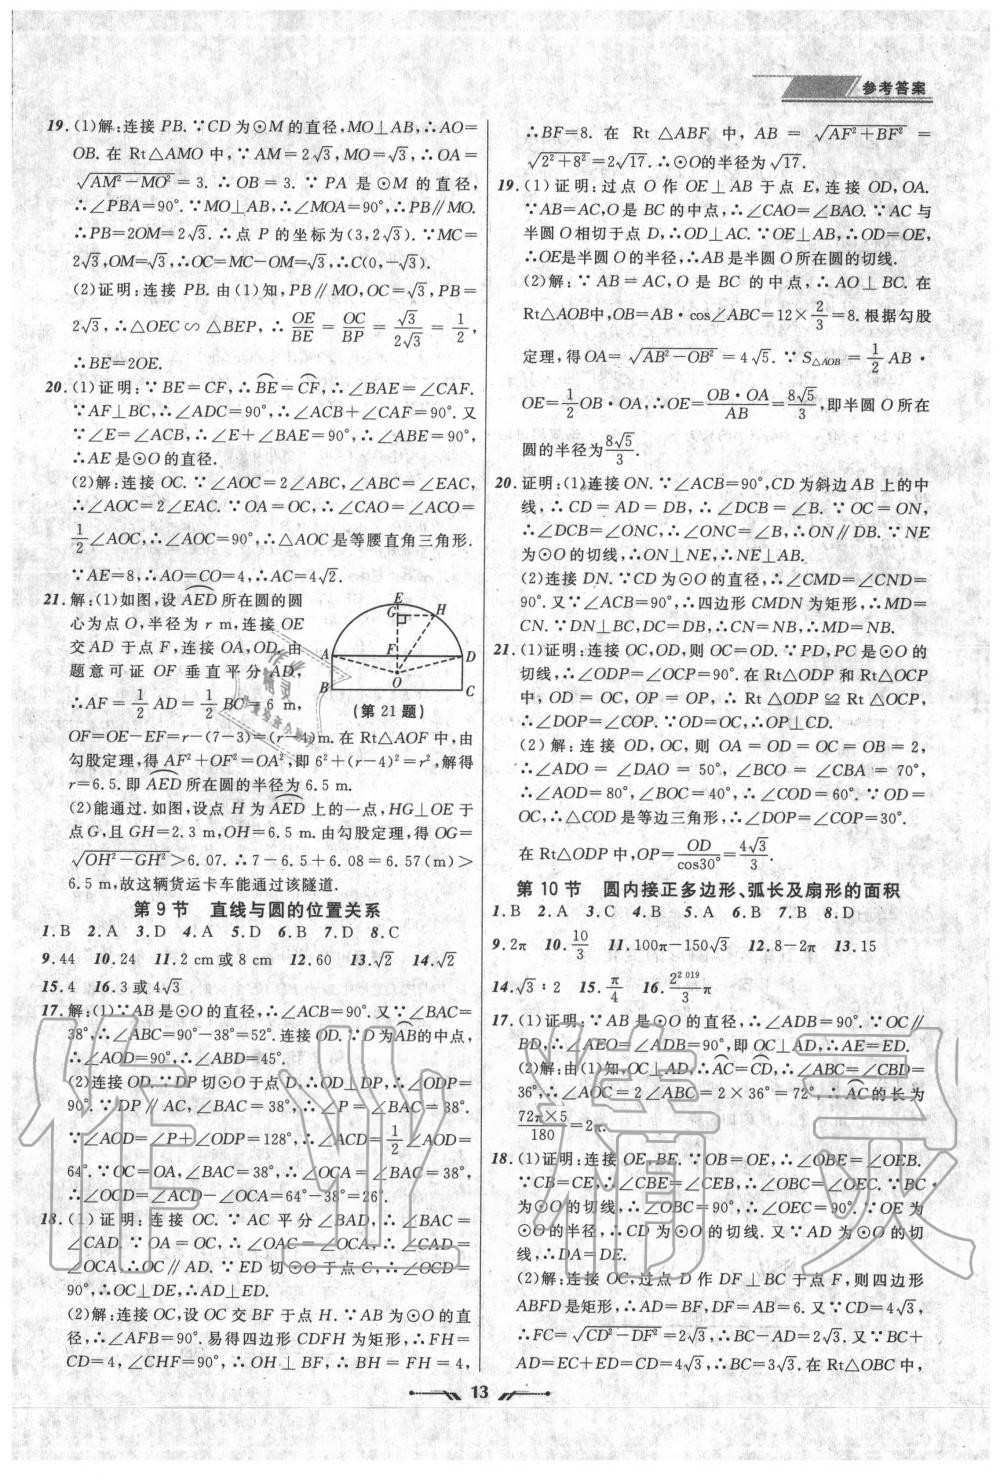 参考答案
19.(1)解:连接 PB.∵CD 为⊙M 的直径,MO⊥AB,∴AO=
OB.在 Rt△AMO 中,∵AM=2√3,MO=√3,∴OA=
√(AM²−MO²)=3.∴OB=3.∵PA 是⊙M 的直径,
∴∠PBA=90°.∵MO⊥AB,∴∠MOA=90°,∴PB∥MO.
∴PB=2OM=2√3.∴点 P 的坐标为(3,2√3).∵MC=
2√3,OM=√3,∴OC=MC−OM=√3,∴C(0,−√3).
(2)证明:连接 PB.由(1)知,PB∥MO,OC=√3,PB=
2√3,∴△OEC∽△BEP,∴OE/BE=OC/BP=√3/2√3=1/2,
∴BE=2OE.
20.(1)证明:∵BE=CF,∴BE⌒=CF⌒,∴∠BAE=∠CAF.
∵AF⊥BC,∴∠ADC=90°,∴∠ACB+∠CAF=90°.又
∵∠E=∠ACB,∴∠E+∠BAE=90°,∴∠ABE=90°,
∴AE 是⊙O 的直径.
(2)解:连接 OC.∵∠AOC=2∠ABC,∠ABC=∠EAC,
∴∠AOC=2∠EAC.∵OA=OC,∴∠CAO=∠ACO=
1/2∠AOC,∴∠AOC=90°,∴△AOC 是等腰直角三角形.
∵AE=8,∴AO=CO=4,∴AC=4√2.
21.解:(1)如图,设 AED⌒ 所在圆的圆
心为点 O,半径为 r m,连接 OE
交 AD 于点 F,连接 OA,OD.由
题意可证 OF 垂直平分 AD,
∴AF=1/2 AD=1/2 BC=6 m,
E
G
H
A
F
D
O
B
C
(第 21 题)
OF=OE−EF=r−(7−3)=(r−4)m.在 Rt△AOF 中,由
勾股定理,得 AF²+OF²=OA²,即 6²+(r−4)²=r²,解得
r=6.5.即 AED⌒ 所在圆的半径为 6.5 m.
(2)能通过.如图,设点 H 为 AED⌒ 上的一点,HG⊥OE 于
点 G,且 GH=2.3 m,OH=6.5 m.由勾股定理,得 OG=
√(OH²−GH²)>6.07.∴7−6.5+6.08=6.57(m)>
6.5 m.故这辆货运卡车能通过该隧道.
第 9 节 直线与圆的位置关系
1.B 2.A 3.D 4.A 5.D 6.B 7.D 8.C
9.44 10.24 11.2 cm或 8 cm 12.60 13.√2 14.√2
15.4 16.3 或 4√3
17.解:(1)∵AB 是⊙O 的直径,∴∠ACB=90°.又∵∠BAC=
38°,∴∠ABC=90°−38°=52°.连接 OD.∵D 为AB⌒的中点,
∴∠AOD=90°,∴∠ABD=45°.
(2)连接 OD.∵DP 切⊙O 于点 D,∴OD⊥DP,∴∠ODP=
90°.∵DP∥AC,∠BAC=38°,∴∠P=∠BAC=38°.
∵∠AOD=∠P+∠ODP=128°,∴∠ACD=1/2∠AOD=
64°.∵OC=OA,∠BAC=38°,∴∠OCA=∠BAC=38°,
∴∠OCD=∠ACD−∠OCA=64°−38°=26°.
18.(1)证明:连接 OC.∵AC 平分∠BAD,∴∠BAC=
∠CAD.∵OA=OC,∴∠OAC=∠OCA,∴∠CAD=
∠OCA,∴OC∥AD.∵ED 切⊙O 于点 C,∴∠OCD=
90°,∴OC⊥DE,∴AD⊥ED.
(2)解:连接 OC,设 OC 交 BF 于点 H.∵AB 为⊙O 的直
径,∴∠AFB=90°.易得四边形 CDFH 为矩形,∴FH=
CD=4,∠CHF=90°,∴OH⊥BF,∴BH=FH=4,
∴BF=8.在 Rt△ABF 中,AB=√(AF²+BF²)=
√(2²+8²)=2√17.∴⊙O的半径为√17.
19.(1)证明:过点 O 作 OE⊥AB 于点 E,连接 OD,OA.
∵AB=AC,O 是 BC 的中点,∴∠CAO=∠BAO.∵AC 与
半圆 O 相切于点 D,∴OD⊥AC.∵OE⊥AB,∴OD=OE,
∴OE是半圆 O 的半径,∴AB 是半圆 O 所在圆的切线.
(2)解:∵AB=AC,O 是 BC 的中点,∴AO⊥BC.在
Rt△AOB中,OB=AB·cos∠ABC=12×2/3=8.根据勾股
定理,得OA=√(AB²−OB²)=4√5.∵S△AOB=1/2 AB·
OE=1/2 OB·OA,∴OE=OB·OA/AB=8√5/3,即半圆 O 所在
圆的半径为8√5/3.
20.证明:(1)连接 ON.∵∠ACB=90°,CD 为斜边 AB 上的中
线,∴CD=AD=DB,∴∠DCB=∠B.∵OC=ON,
∴∠DCB=∠ONC,∴∠ONC=∠B,∴ON∥DB.∵NE
为⊙O 的切线,∴ON⊥NE,∴NE⊥AB.
(2)连接 DN.∵CD 为⊙O 的直径,∴∠CMD=∠CND=
90°.又∵∠ACB=90°,∴四边形 CMDN 为矩形,∴MD=
CN.∵DN⊥BC,DC=DB,∴CN=NB,∴MD=NB.
21.(1)证明:连接 OC,OD,则 OC=OD.∵PD,PC是⊙O 的
切线,∴∠ODP=∠OCP=90°.在 Rt△ODP 和 Rt△OCP
中,OD=OC,OP=OP,∴Rt△ODP≌Rt△OCP,
∴∠DOP=∠COP.∵OD=OC,∴OP⊥CD.
(2)解:连接 OD,OC,则 OA=OD=OC=OB=2,
∴∠ADO=∠DAO=50°,∠BCO=∠CBA=70°,
∴∠AOD=80°,∠BOC=40°,∴∠COD=60°.∵OD=
OC,∴△COD 是等边三角形,∴∠DOP=∠COP=30°.
在 Rt△ODP 中,OP=OD/cos30°=4√3/3.
第 10 节 圆内接正多边形、弧长及扇形的面积
1.B 2.A 3.C 4.C 5.A 6.B 7.B 8.D
9.2π 10.10/3 11.100π−150√3 12.8−2π 13.15
14.√3∶2 15.π/4 16.2^2019/3 π
17.(1)证明:∵AB 是⊙O 的直径,∴∠ADB=90°.∵OC∥
BD,∴∠AEO=∠ADB=90°,即 OC⊥AD,∴AE=ED.
(2)解:由(1)知,OC⊥AD,∴AC⌒=CD⌒,∴∠ABC=∠CBD=
36°,∴∠AOC=2∠ABC=2×36°=72°,∴AC⌒的长为
72π×5/180=2π.
18.(1)证明:连接 OE,BE.∵OB=OE,∴∠OBE=∠OEB.
∵CB=CE,∴∠CBE=∠CEB,∴∠OBC=∠OEC.∵BC
为⊙O 的切线,∴∠OBC=90°,∴∠OEC=90°.∵OE 为
⊙O 的半径,∴CD 为⊙O 的切线.又∵AD 为⊙O 的切
线,∴DA=DE.
(2)解:连接 OC,过点 D 作 DF⊥BC 于点 F,则四边形
ABFD 是矩形,∴AD=BF,DF=AB=6.又∵CD=4√3,
∴FC=√(CD²−DF²)=2√3,∴BC−AD=2√3.又∵BC+
AD=EC+ED=CD=4√3,∴BC=3√3.在 Rt△OBC 中,
13
作业精灵